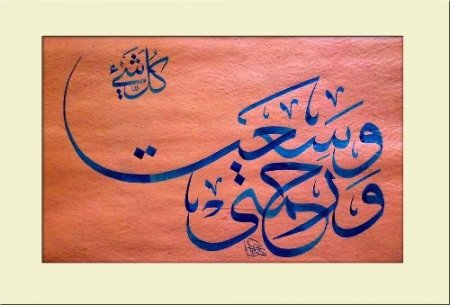 ورحمتي
وسعت
كُلَّ شَيْءٍ